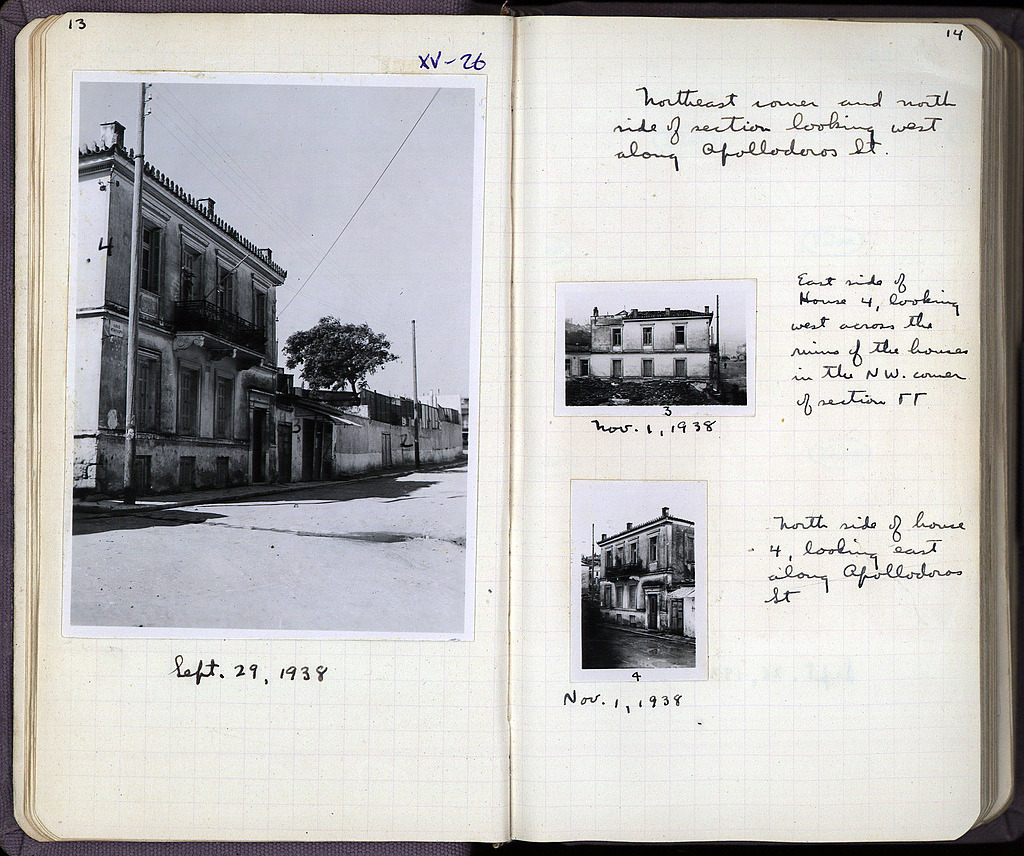 13
XV-26
4
3
2
Sept. 29, 1938
14
Northeast corner and north
side of section looking west
along Apollodoros St.
3
Nov. 1, 1938
East side of
House 4, looking
west across the
ruins of the houses
in the NW. corner
of section ΓΓ
4
Nov. 1, 1938
North side of house
4, looking east
along Apollodoros
St